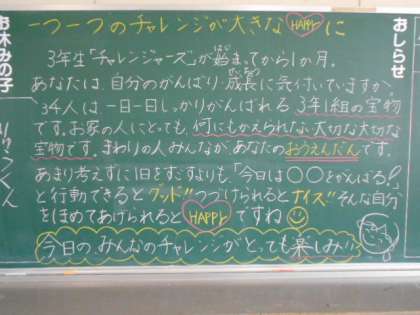 一つ一つのチャレンジが大きなHAPPYに
3年生「チャレンジャーズ」が始まってから1か月。
あなたは、自分のがんばり・成長に気付いていますか。
34人は一日一日しっかりがんばれる3年1組の宝物
です。お家の人にとっても、何にもかえられない大切な大切な
宝物です。まわりの人みんながあなたのおうえんだんです。
あまり考えずに1日をすごすよりも「今日は○○をがんばる!」
と行動できるとグッド!!つづけられるとナイス!!そんな自分
をほめてあげられるとHAPPYですね
今日の、みんなのチャレンジがとっても楽しみ!!
おしらせ
お休みの子
くん